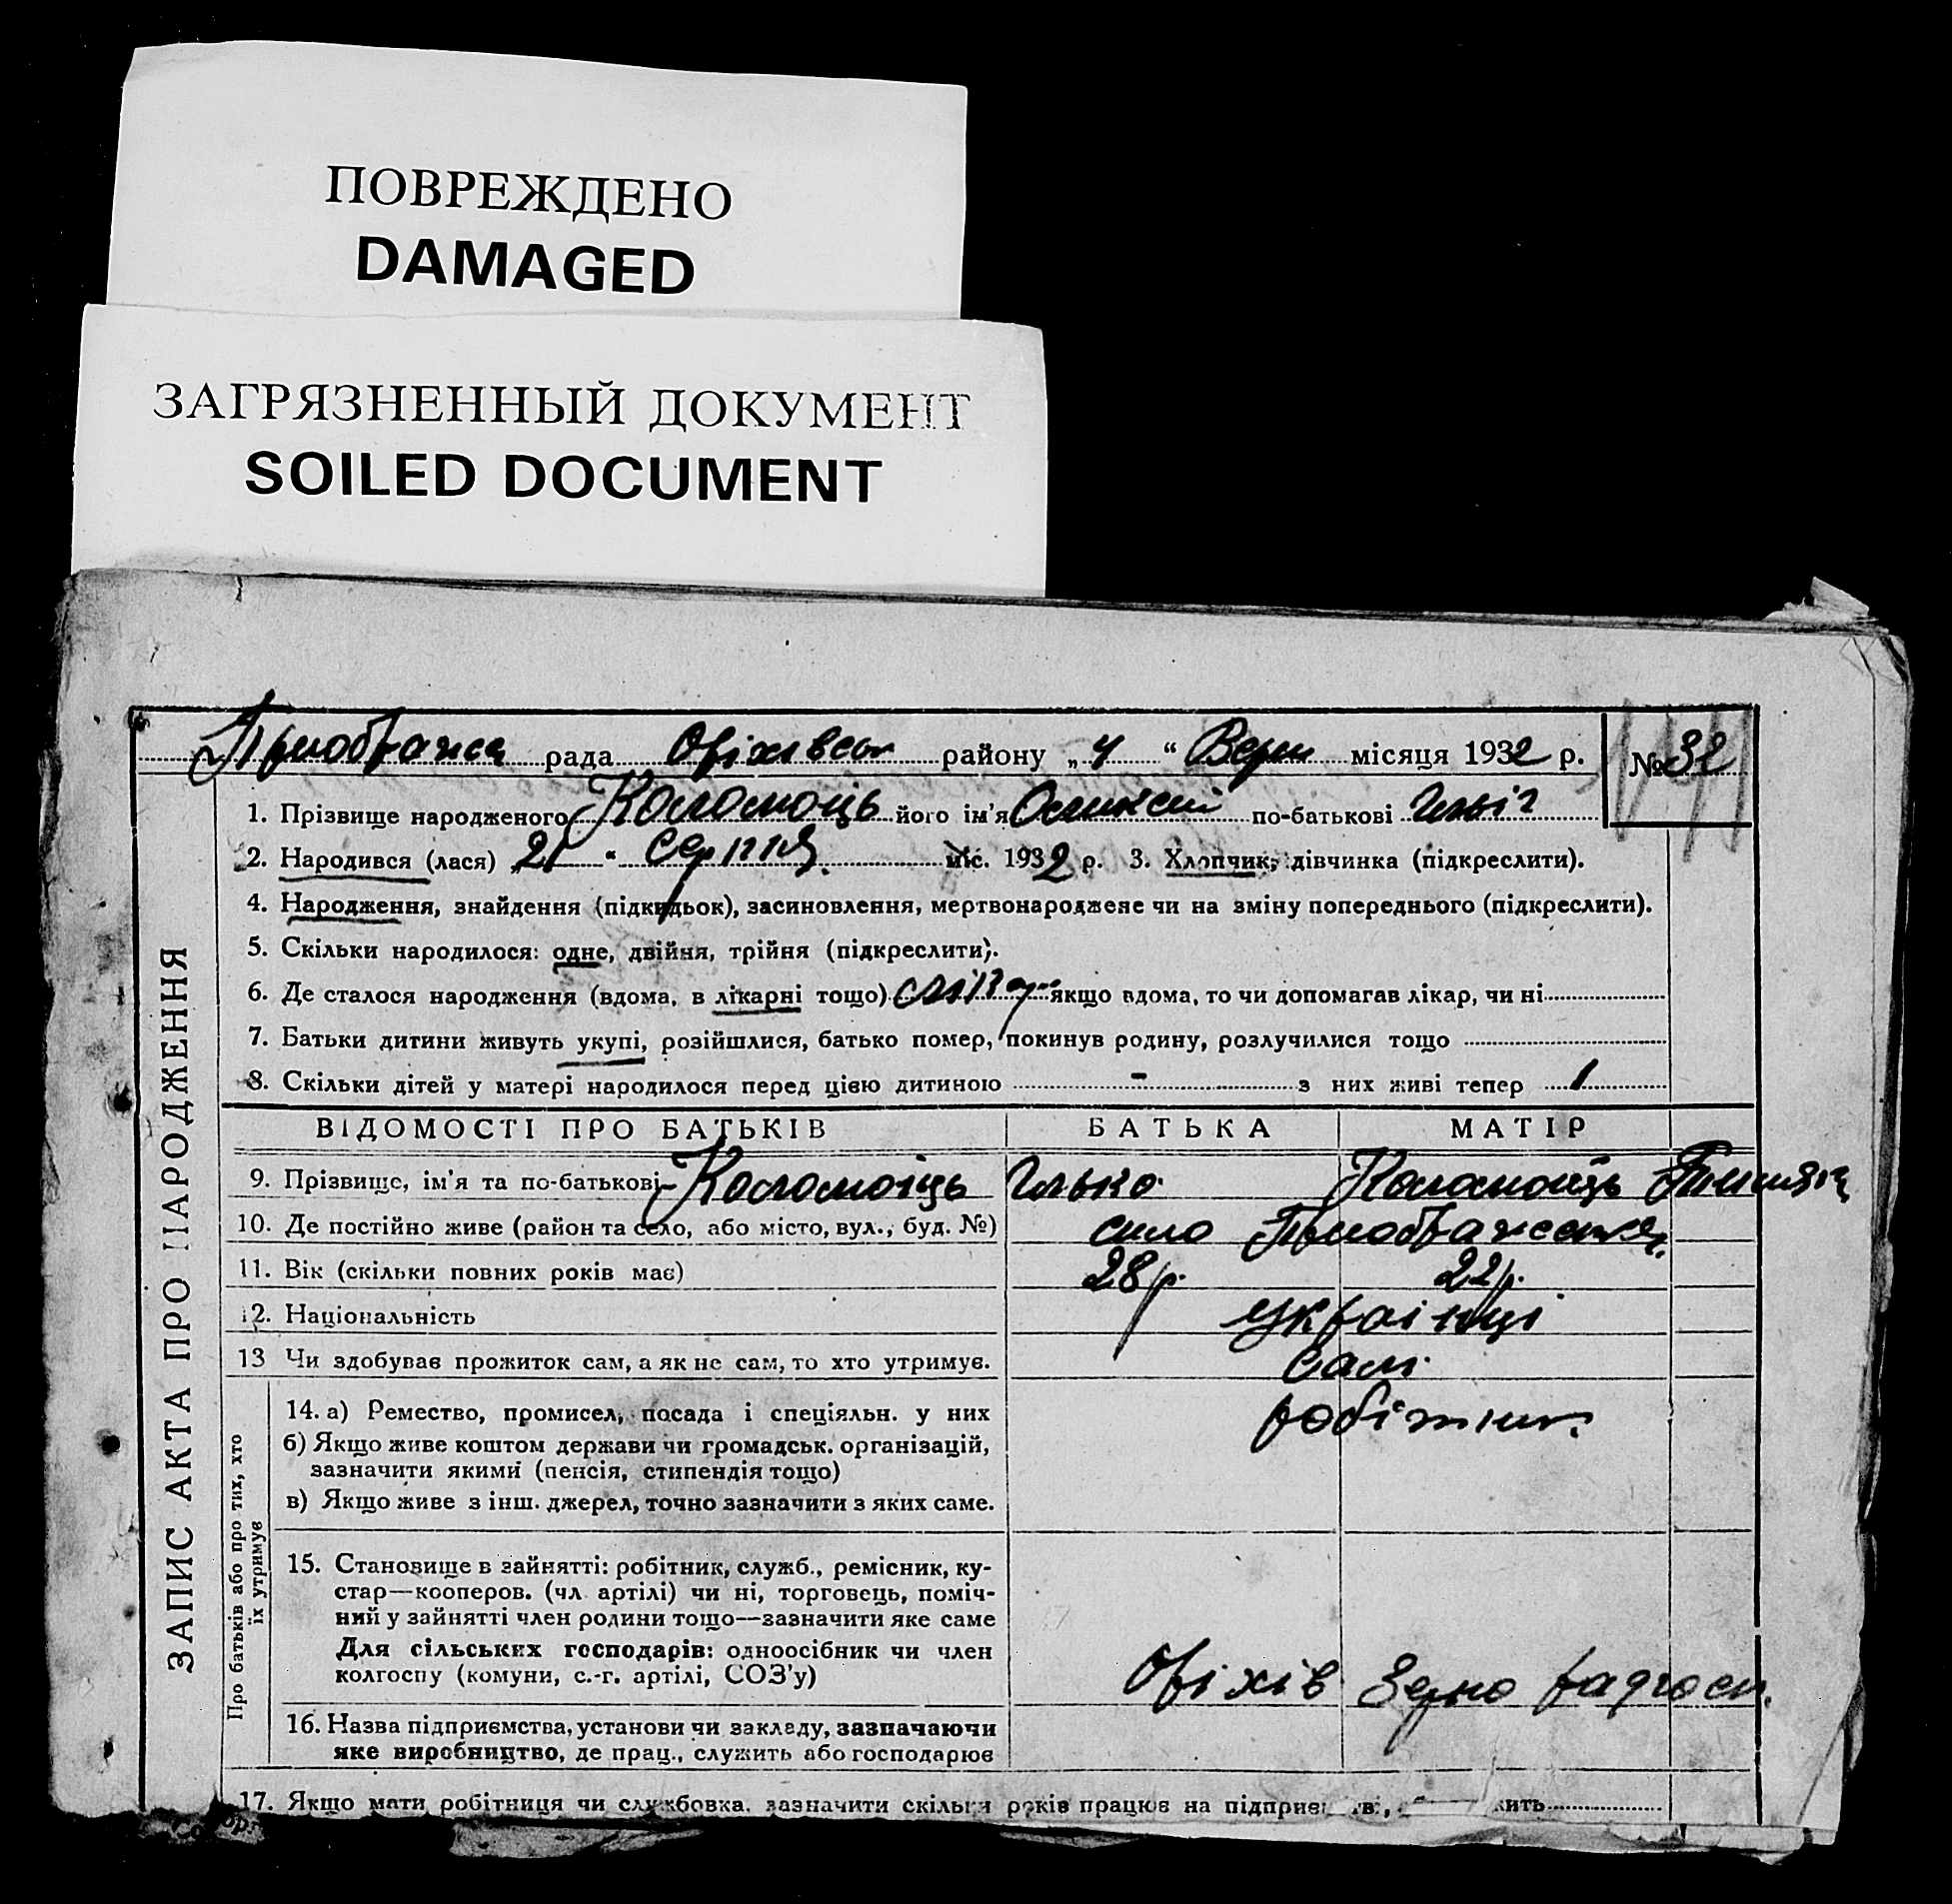 ПОВРЕЖДЕНО
DAMAGED
ЗАГРЯЗНЕННЫЙ ДОКУМЕНТ
SOILED DOCUMENT
Преображен рада Оріхівськ району „4“ Верес місяця 1932 р. № 32
ЗАПИС АКТА ПРО НАРОДЖЕННЯ
1. Прізвище народженого Коломоїць його ім'я Олексій по-батькові Ільіч
2. Народився (лася) „21“ Серпня міс. 1932 р. 3. Хлопчик, дівчинка (підкреслити).
4. Народження, знайдення (підкидьок), засиновлення, мертвонароджене чи на зміну попереднього (підкреслити).
5. Скільки народилося: одне, двійня, трійня (підкреслити).
6. Де сталося народження (вдома, в лікарні тощо) якщо вдома, то чи допомагав лікар, чи ні
7. Батьки дитини живуть укупі, розійшлися, батько помер, покинув родину, розлучилися тощо
8. Скільки дітей у матері народилося перед цією дитиною - з них живі тепер 1
ВІДОМОСТІ ПРО БАТЬКІВ БАТЬКА МАТІР
9. Прізвище, ім'я та по-батькові Коломоїць Ілько Коломоїць
10. Де постійно живе (район та село, або місто, вул., буд. №) село Преображення
11. Вік (скільки повних років має) 28 р. 22 р.
12. Національність українці
13 Чи здобуває прожиток сам, а як не сам, то хто утримує. Самі
Про батьків або про тих, хто їх утримує
14. а) Ремество, промисел, посада і спеціяльн. у них робітник
б) Якщо живе коштом держави чи громадськ. організацій,
зазначити якими (пенсія, стипендія тощо)
в) Якщо живе з інш. джерел, точно зазначити з яких саме.
15. Становище в зайнятті: робітник, служб., ремісник, ку-
стар—кооперов. (чл. артілі) чи ні, торговець, поміч-
ний у зайнятті член родини тощо—зазначити яке саме
Для сільських господарів: одноосібник чи член
колгоспу (комуни, с.-г. артілі, СОЗ'у) Оріхів Зерно радгосп.
16. Назва підприємства, установи чи закладу, зазначаючи
яке виробництво, де прац., служить або господарює
17. Якщо мати робітниця чи службовка, зазначити скільки років працює на